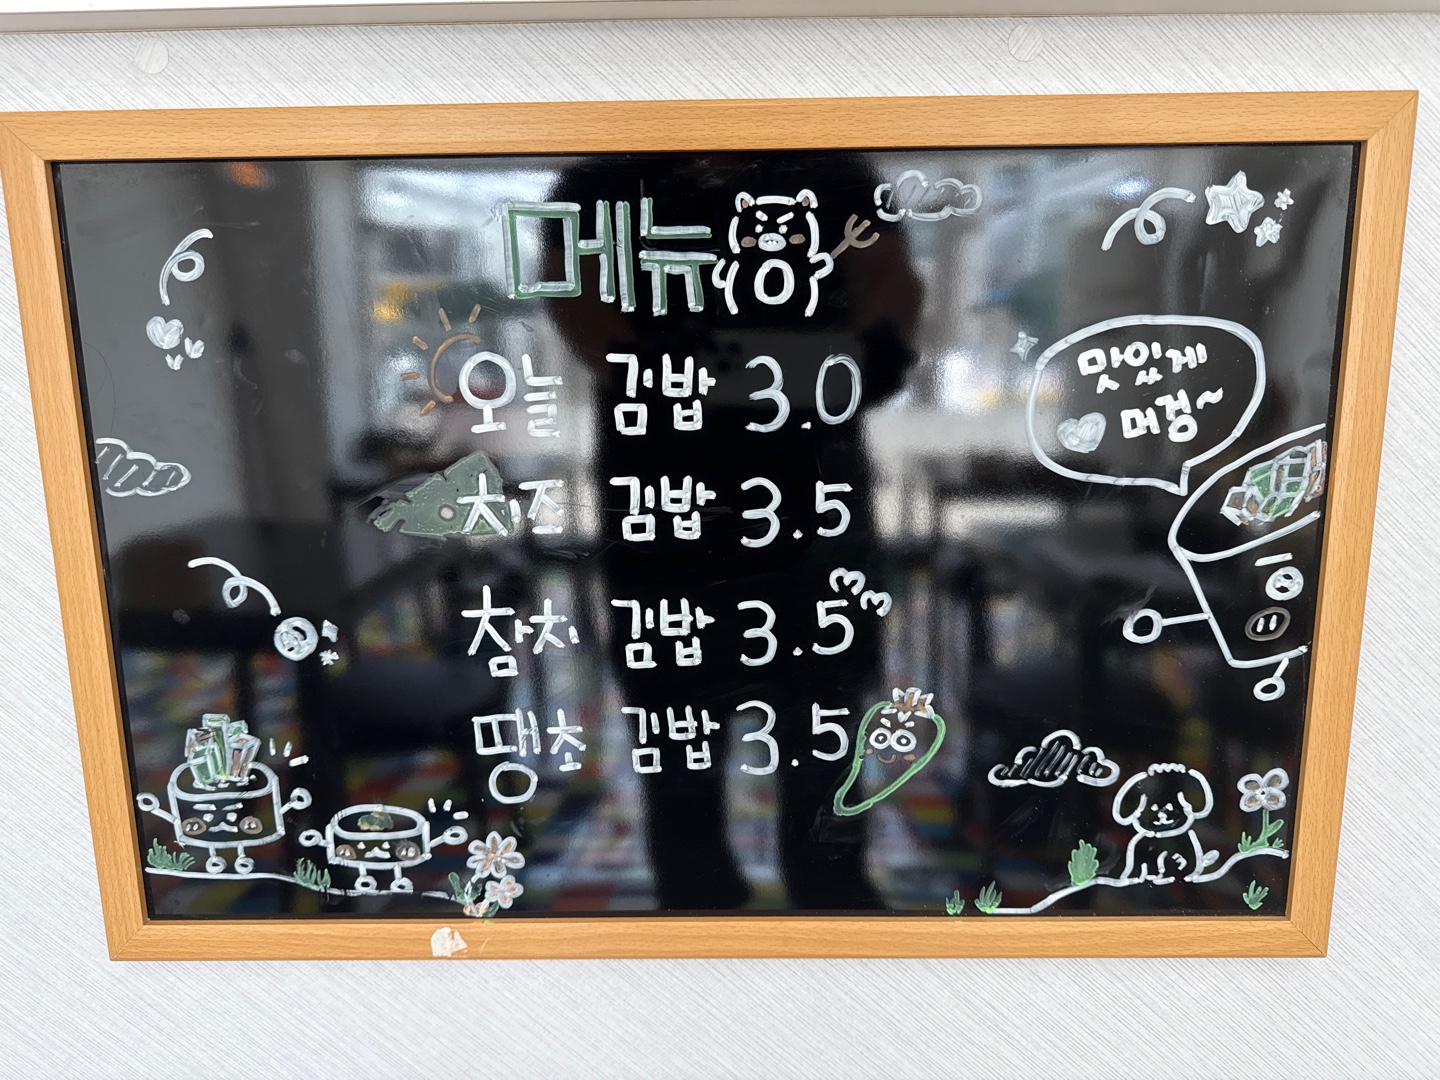 메뉴
오늘 김밥 3.0
치즈 김밥 3.5
참치 김밥 3.5
땡초 김밥 3.5
맛있게
머겅~